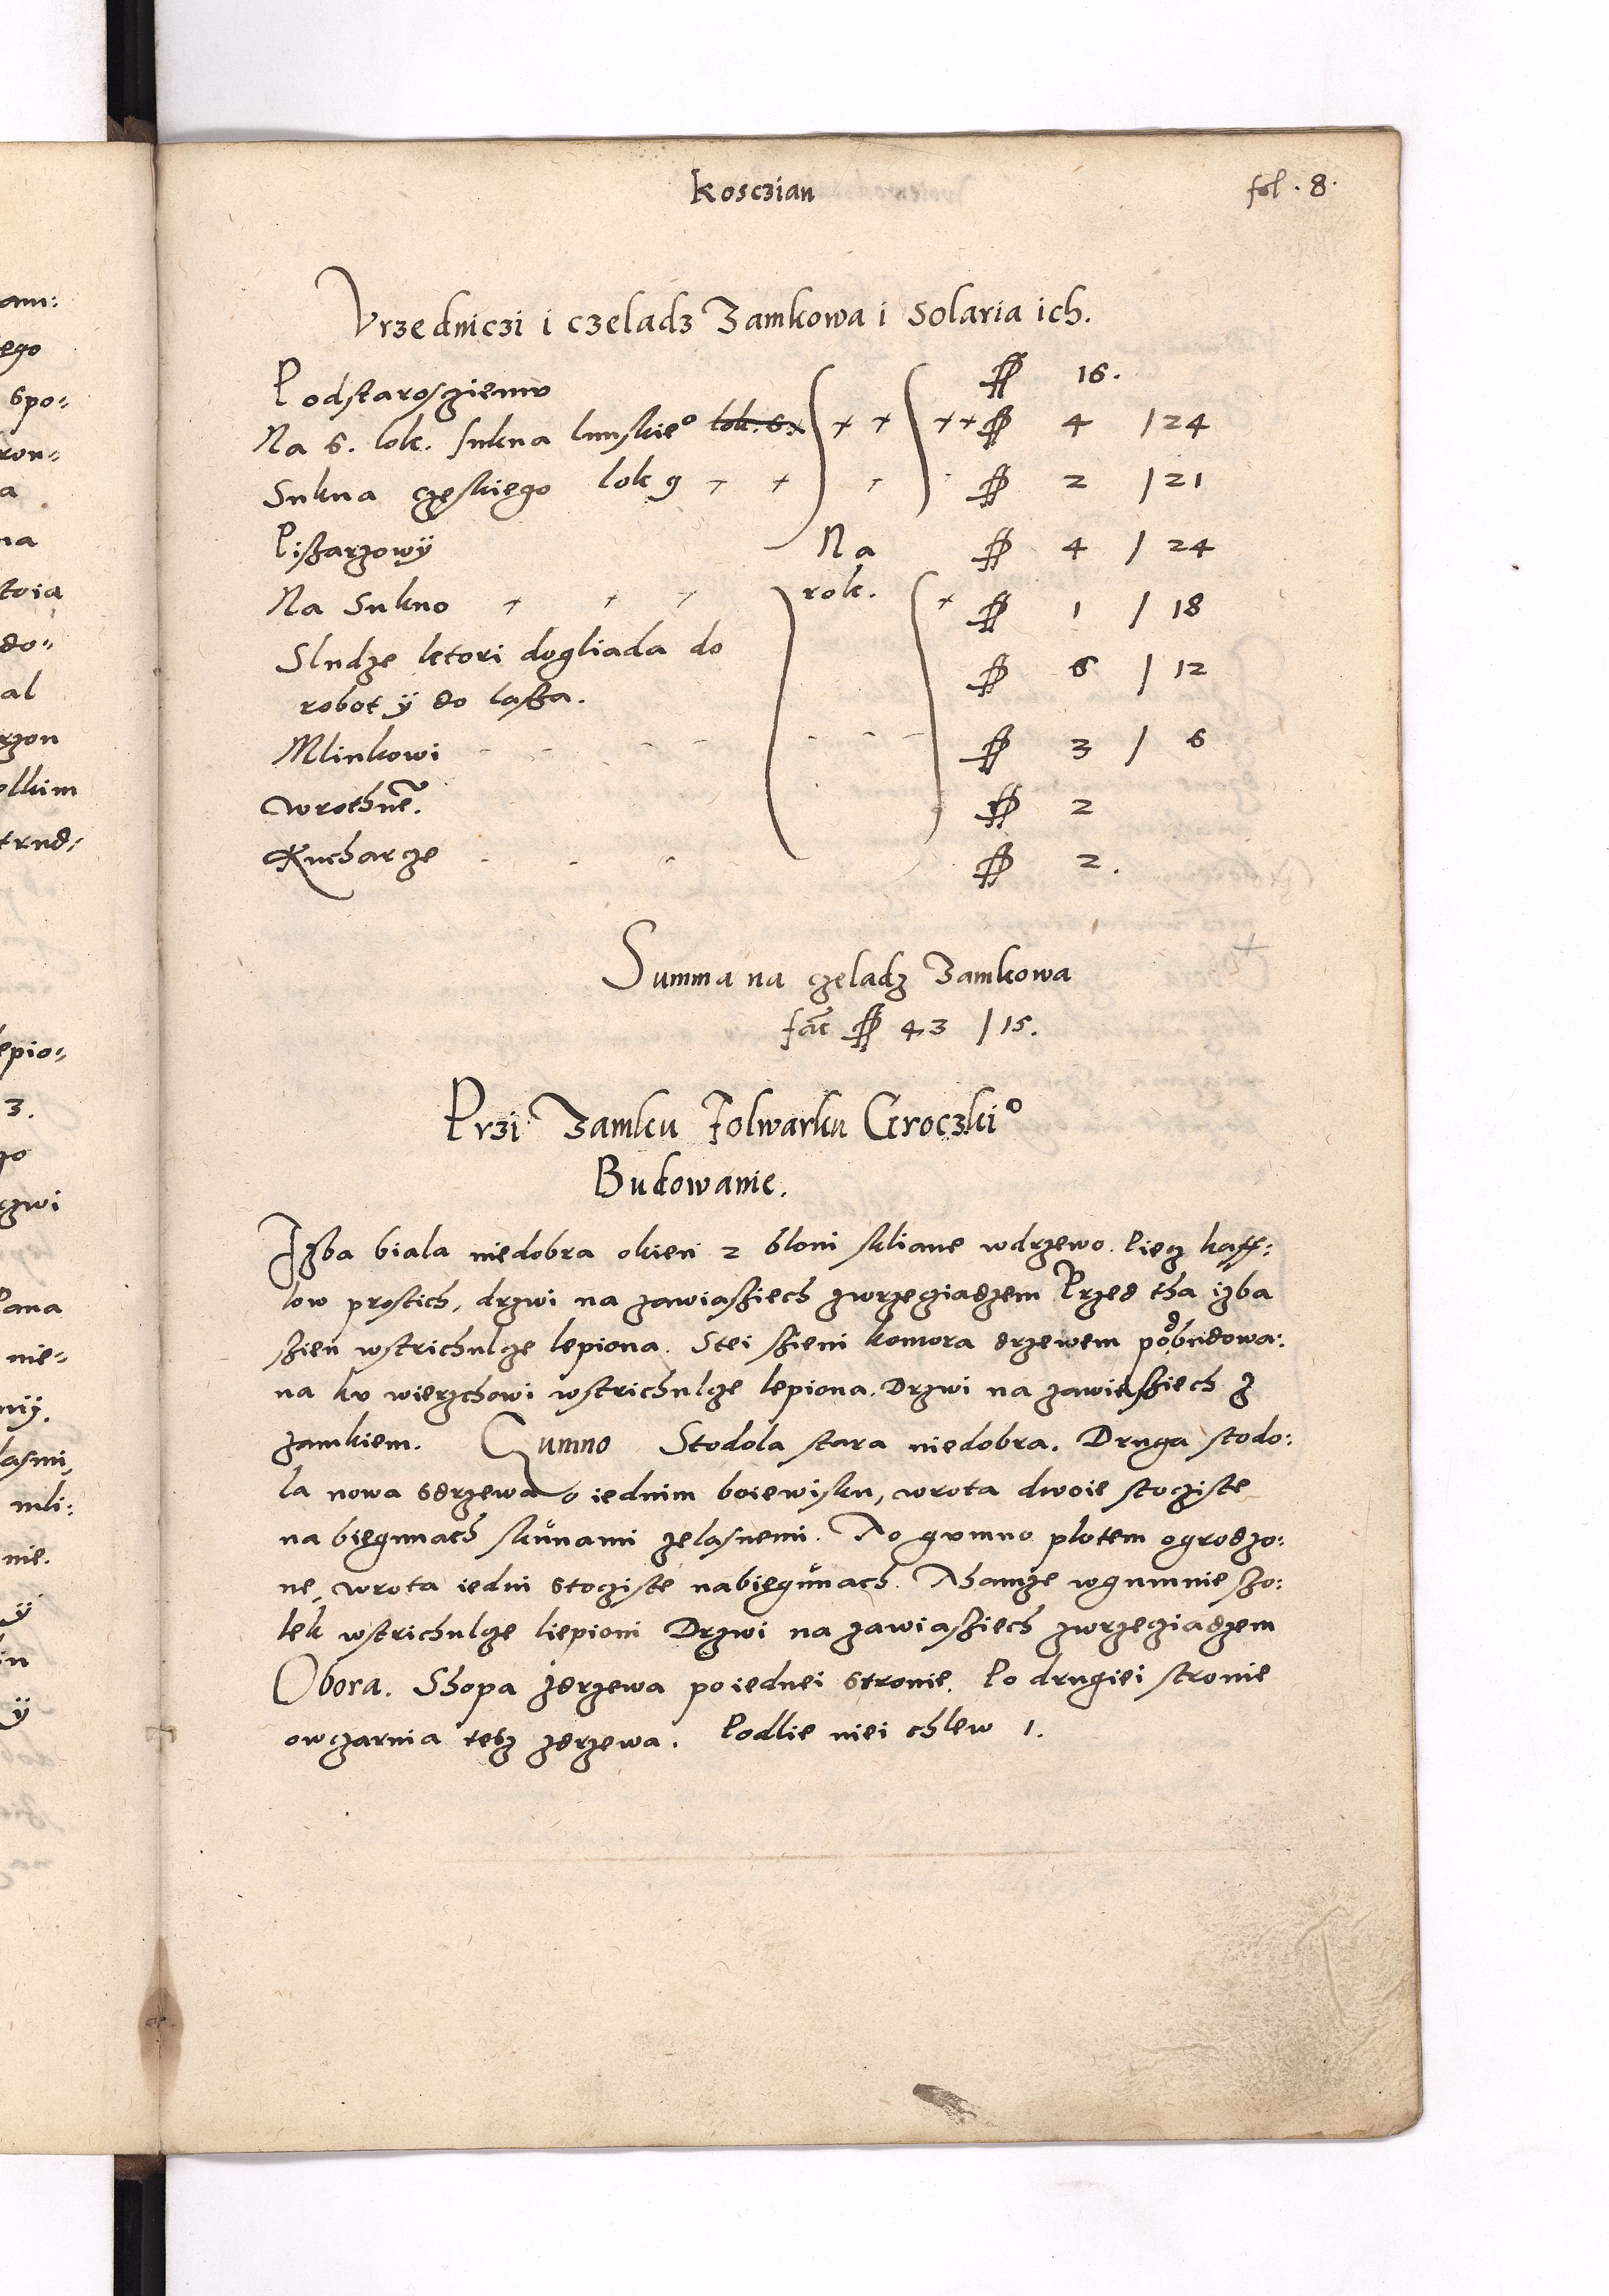 Kosczian
fol. 8.
Vrzedniczi i czeladz Zamkowa i Solaria ich.
Podstarosziemv 16.
Na 6. lok. sukna lunskieº lok. 6. 4 / 24
Sukna czeskiego lok 9 2 / 21
Piszarzowÿ Na 4 / 24
Na Sukno rok. 1 / 18
Sludze ktori dogliada do 6 / 12
robot ÿ do lassa.
Mlinkowi 3 / 6
Wrothne. 2
Kucharze 2.
Summa na czeladz Zamkowa
fac 43 / 15.
Przi Zamku Folwarku Groczkiº
Budowanie.
Izba biala niedobra okien 2 bloni skliane wdrzewo. Piecz kaff:
low prostich, drzwi na zawiassiech zwrzecziadzem Przed tha izba
szien wstrichulcze lepiona. Stei szieni komora drzewem podbudowa:
na kv wierzchowi wstrichulcze lepiona. Drzwi na zawiassiech z
zamkiem. Gumno Stodola stara niedobra. Druga stodo:
la nowa sdrzewa o iednim boiewisku, wrota dwoie stocziste
na biegunach skunami zelasnemi. To gvmno plotem ogrodzo:
ne, wrota iedni stocziste nabiegunach. Thamze wgumnie szo:
lek wstrichulcze liepioni Drzwi na zawiassiech zwrzecziadzem
Obora. Shopa zdrzewa po iednei stronie. Po drugiei stronie
owczarnia tesz zdrzewa. Podlie niei chlew 1.